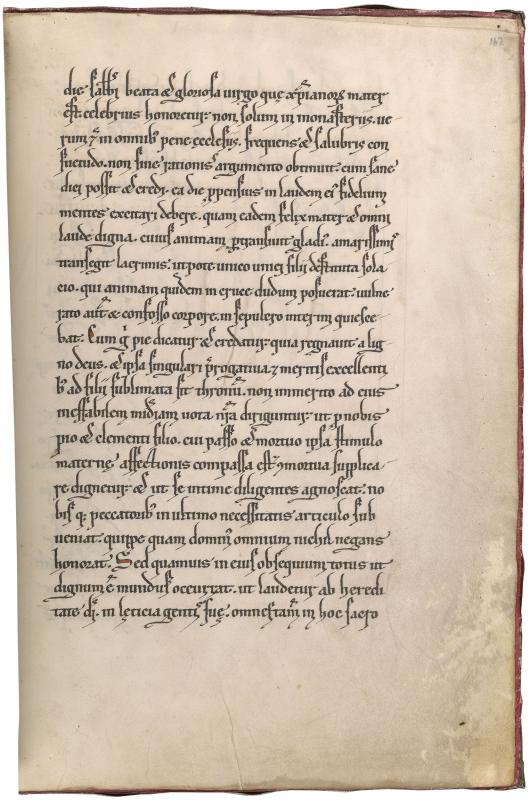 162
die sabbi beata & gloriosa uirgo quę xp̃ianoꝝ mater
est celebrius honoretur. non solum in monasteriis. ue
rum & in omnib; pene ęcclesiis. frequens & salubris con
suetudo. non sine rationis argumento obtinuit. cum sane
dici possit & credi. ea die ꝓpensius in laudem ei' fidelium
mentes excitari debere. quam eadem felix mater & omni
laude digna. cuius animam ꝑtransiuit gladi'. amarissimi'
transegit lacrimis. utpote unico unici filii destituta sola
cio. qui animam quidem in cruce dudum posuerat. uulne
rato aut̃ & confosso corpore. in sepulcro interim quiesce
bat. Cum g̊ pie dicatur & credatur. quia regnauit a lig
no deus. & ipsa singulari p̃rogatiua & meritis excellenti
b; ad filii sublimata sit thronũ. non immerito ad eius
ineffabilem mĩdiam uota nr̃a diriguntur. ut ꝓ nobis
pio & clementi filio. cui passo & mortuo ipsa stimulo
maternę affectionis compassa est & mortua supplica
re dignetur. & ut se intime diligentes agnoscat. no
bis q; peccatorib; in ultimo necessitatis articulo sub
ueniat. quippe quam domin' omnium nichil negans
honorat. Sed quamuis in eius obsequium totus ut
dignum ẽ mundus occurrat. ut laudetur ab heredi
tate dĩ. in lęticia genti' suę. omnes tam̃ in hoc sacro